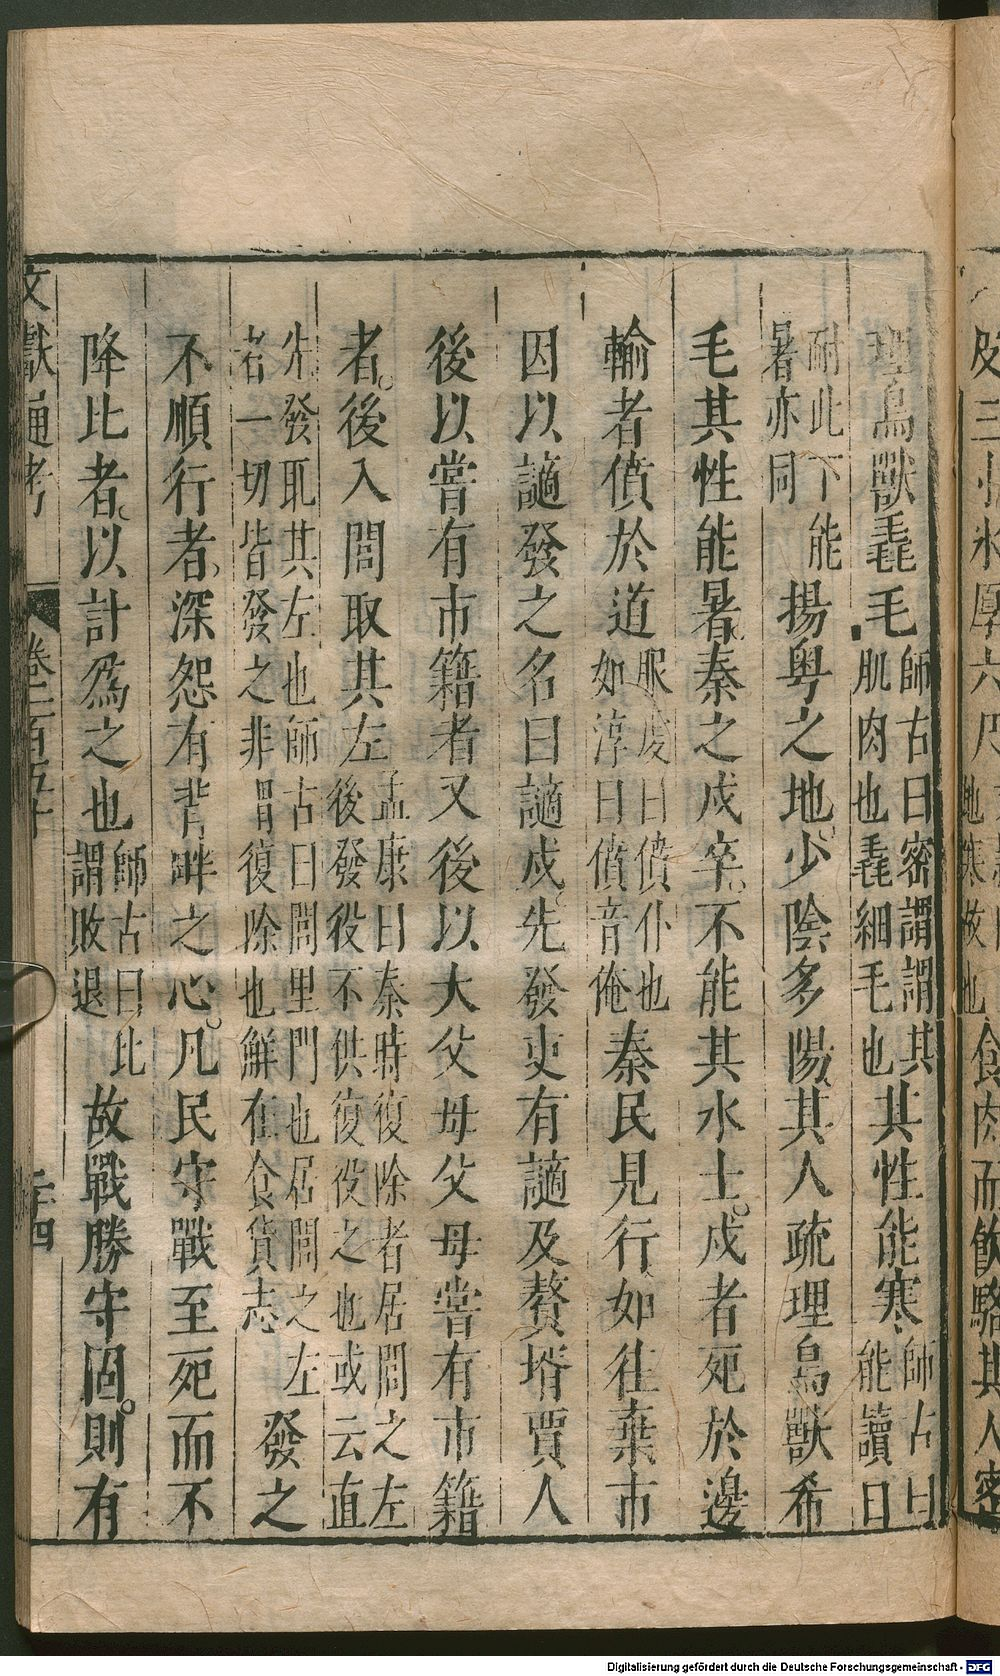 理鳥獸毳毛師古曰密謂謂其肌肉也毳細毛也其性能寒師古曰能讀曰
耐此下能暑亦同揚粤之地少陰多陽其人疏理鳥獸希
毛其性能暑秦之戍卒不能其水土戍者死於邊
輸者僨於道服虔曰僨仆也如淳曰僨音俺秦民見行如往棄市
因以讁發之名曰讁戍先發吏有讁及贅壻賈人
後以嘗有市籍者又後以大父母父母嘗有市籍
者後入閭取其左孟康曰秦時復除者居閭之左後發役不供復役之也或云直
先發取其左也師古曰閭里門也居閭之左者一切皆發之非謂復除也解在食貨志發之
不順行者深怨有背畔之心凡民守戰至死而不
降比者以計爲之也師古曰比謂敗退故戰勝守固則有
文獻通考 卷三百五十 三四
食肉而飲酪其人密
Digitalisierung gefördert durch die Deutsche Forschungsgemeinschaft - DFG